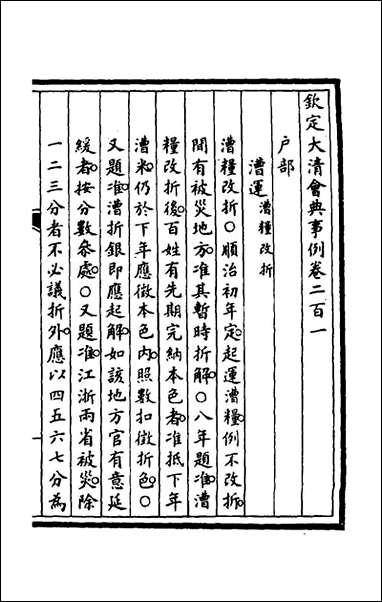 欽定大清會典事例卷二百一
户部
漕運漕糧改折
漕糧改折○順治初年定起運漕糧例不改折
間有被災地方准其暫時折解○八年題准漕
糧改折後百姓有先期完納本色者准抵下年
漕米仍於下年應徵本色內照數扣徵折色○
又題准漕折銀即應起解如該地方官有意延
緩者按分數叅處○又題准江浙兩省被災除
一二三分者不必議折外應以四五六七分為